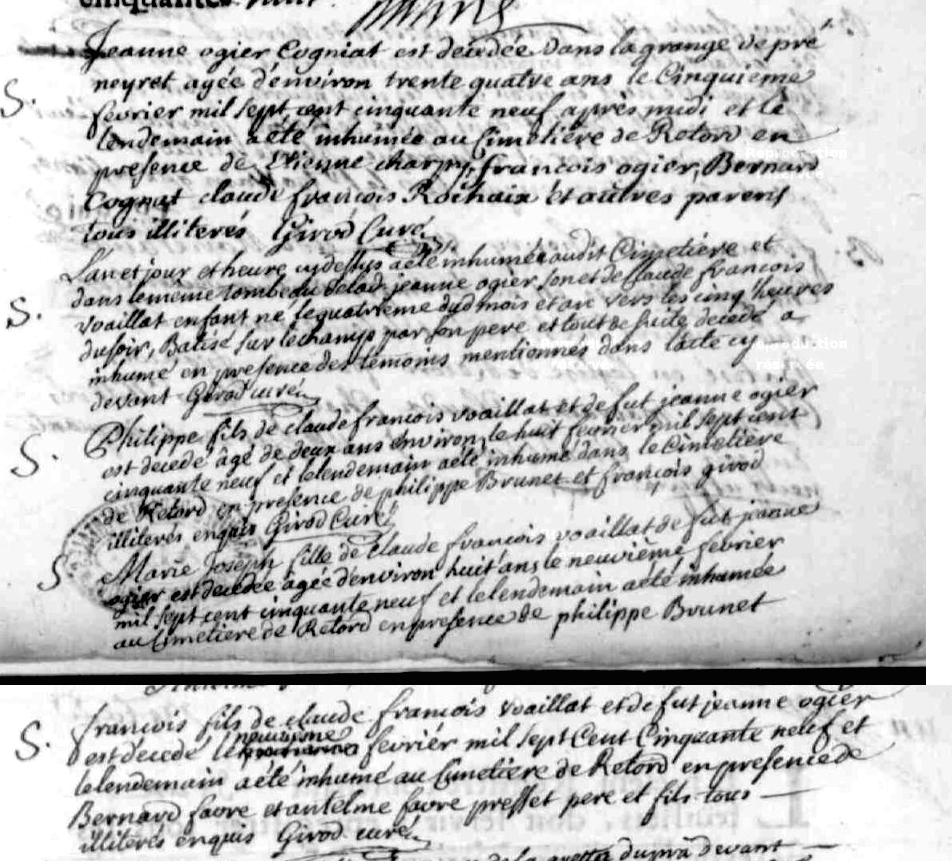 cinquante neuf
Jeanne ogier Cogniat est decedée Dans la grange de pré
neyret agée d'environ trente quatre ans le Cinquième
S. février mil sept cent cinquante neuf après midi et le
lendemain a été inhumée au Cimetière de Retord en
presence de Etienne charpy, françois ogier, Bernard
Cognat claude françois Rochaix et autres parens
tous illiterés Girod Curé
L'an et jour et heure cy dessus a été inhumé audit Cimetiere et
dans le même tombeau de lad. jeanne ogier son et de Claude françois
S. Voaillat enfant né le quatrieme dud mois et an vers les cinq heures
du soir, Batisé sur le champ par son pere et tout de suite decedé a
inhumé en presence des temoins mentionnés dans l'acte cy
devant Girod curé
Philippe fils de claude françois voaillat et de fut jeanne ogier
S. est decedé âgé de deux ans environ, le huit fevrier mil sept cent
cinquante neuf et le lendemain a été inhumé dans le Cimetière
de Retord en presence de philippe Brunet et françois girod
illiterés enquis Girod Curé
Marie Joseph fille de claude françois voaillat de fut jeanne
S ogier est decedée âgée d'environ huit ans le neuvième fevrier
mil sept cent cinquante neuf et le lendemain a été inhumée
au Cimetiere de Retord en presence de philippe Brunet
françois fils de claude françois voaillat et de fut jeanne ogier
neuvième
S. est decedé le fevriér mil sept Cent Cinquante neuf et
le lendemain a été inhumé au Cimetiere de Retord en presence de
Bernard favre et antelme favre presset pere et fils tous
illiterés enquis Girod curé
de la dupra devant